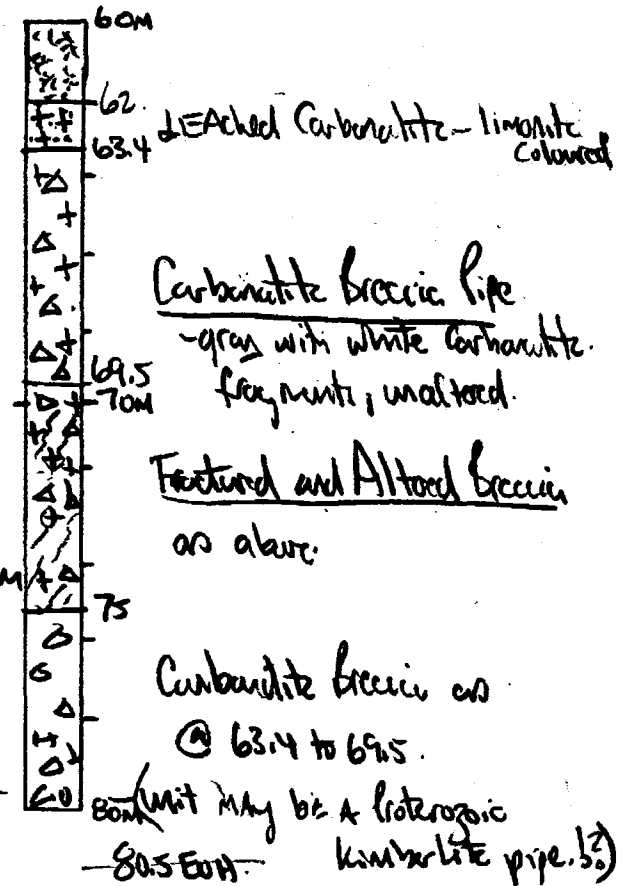 60M
62.
LEAched Carbonatite - limonite
Coloured
63.4
Carbonatite Breccia Pipe
- gray with white Carbonatite.
fragments, unaltered.
69.5
70M
Fractured and Altered Breccia
as above.
M
75
Carbonatite Breccia as
@ 63.4 to 69.5.
80M (Unit MAy bE A Proterozoic
kimberlite pipe.?)
80.5 EOH.